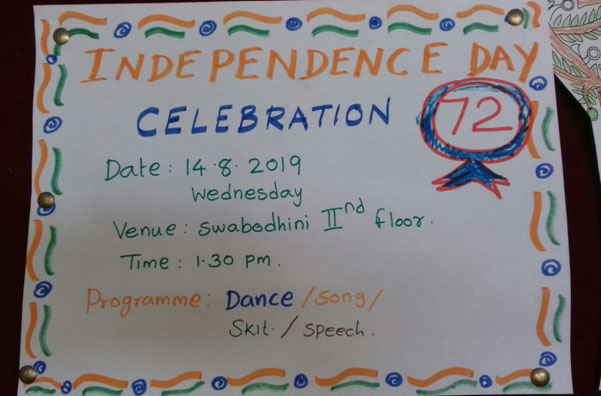 INDEPENDENCE DAY
CELEBRATION
72
Date : 14.8.2019
Wednesday
Venue : Swabodhini IInd floor.
Time : 1.30 pm.
Programme : Dance / Song /
Skit. / Speech.